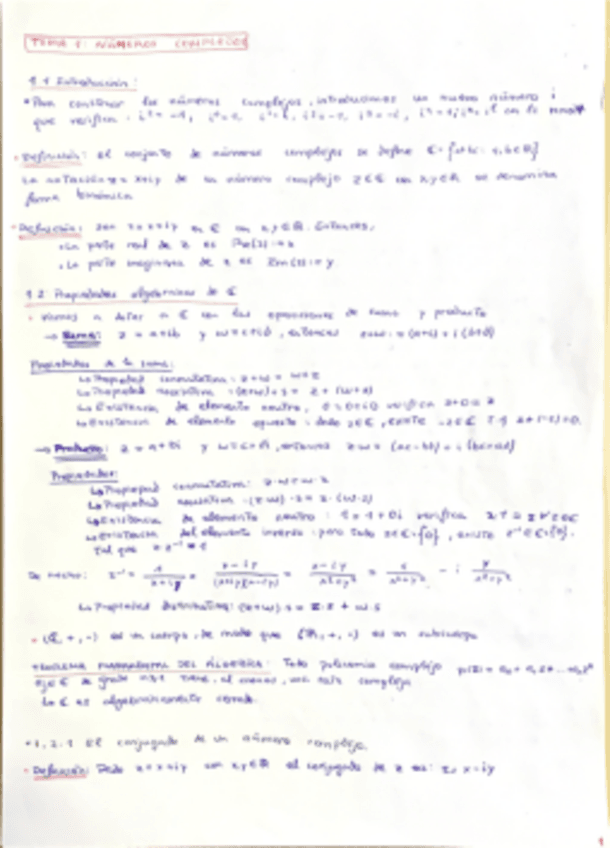 TEMA 1: NÚMEROS COMPLEJOS
1.1 Introducción:
• Para construir los números complejos, introducimos un nuevo número i
que verifica: i² = -1,
• Definición: El conjunto de números complejos se define ℂ = {a+bi: a,b∈ℝ}
La notación z = x+iy de un número complejo z∈ℂ con x,y∈ℝ se denomina
forma binómica
• Definición: Sea z = x+iy en ℂ con x,y∈ℝ. Entonces,
• La parte real de z es Re(z) := x
• La parte imaginaria de z es Im(z) := y
1.2 Propiedades algebraicas de ℂ
• Vamos a dotar a ℂ con las operaciones de suma y producto
→ Suma: z = a+ib y w = c+id, entonces z+w := (a+c) + i(b+d)
Propiedades de la suma:
↳ Propiedad conmutativa: z+w = w+z
↳ Propiedad asociativa: (z+w)+s = z+(w+s)
↳ Existencia de elemento neutro, 0 = 0+i0 verifica z+0 = z
↳ Existencia de elemento opuesto: dado z∈ℂ, existe -z∈ℂ t.q z+(-z)=0.
→ Producto: z = a+bi y w = c+di, entonces z·w = (ac-bd) + i(bc+ad)
Propiedades:
↳ Propiedad conmutativa: z·w = w·z
↳ Propiedad asociativa: (z·w)·s = z·(w·s)
↳ Existencia de elemento neutro: 1 = 1+0i verifica z·1 = z ∀z∈ℂ
↳ Existencia del elemento inverso: para todo z∈ℂ\{0}, existe z⁻¹∈ℂ\{0},
tal que z·z⁻¹ = 1
De hecho: z⁻¹ = 1/(x+iy) = (x-iy)/((x+iy)(x-iy)) = (x-iy)/(x²+y²) = x/(x²+y²) - i y/(x²+y²)
↳ Propiedad distributiva: (z+w)·s = z·s + w·s
• (ℂ, +, ·) es un cuerpo, de modo que (ℝ, +, ·) es un subcuerpo
TEOREMA FUNDAMENTAL DEL ÁLGEBRA: Todo polinomio complejo p(z) = a₀ + a₁z + ... aₙzⁿ
aⱼ∈ℂ de grado n≥1 tiene, al menos, una raíz compleja
↳ ℂ es algebraicamente cerrado.
• 1.2.1 El conjugado de un número complejo.
• Definición: Dado z = x+iy con x,y∈ℝ el conjugado de z es: x-iy